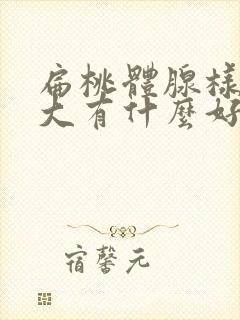 扁桃體腺樣
大有什麼好
宿馨元